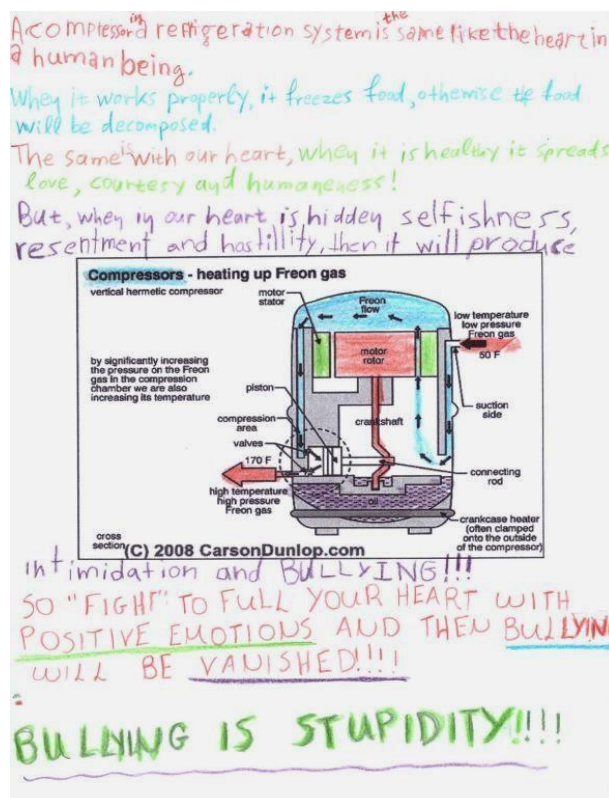 A compressor in refrigeration system is the same like the heart in
a human being.
When it works properly, it freezes food, otherwise the food
will be decomposed.
The same is with our heart, when it is healthy it spreads
love, courtesy and humaneness!
But, when in our heart is hidden selfishness,
resentment and hastillity, then it will produce
Compressors - heating up Freon gas
vertical hermetic compressor
motor
stator
Freon
flow
low temperature
low pressure
Freon gas
50 F
motor
rotor
by significantly increasing
the pressure on the Freon
gas in the compression
chamber we are also
increasing its temperature
piston
suction
side
compression
area
crankshaft
valves
170 F
connecting
rod
high temperature
high pressure
Freon gas
oil
crankcase heater
(often clamped
onto the outside
of the compressor)
cross
section
(C) 2008 CarsonDunlop.com
intimidation and BULLYING!!!
SO "FIGHT" TO FULL YOUR HEART WITH
POSITIVE EMOTIONS AND THEN BULLYING
WILL BE VANISHED!!!!
BULLYING IS STUPIDITY!!!!